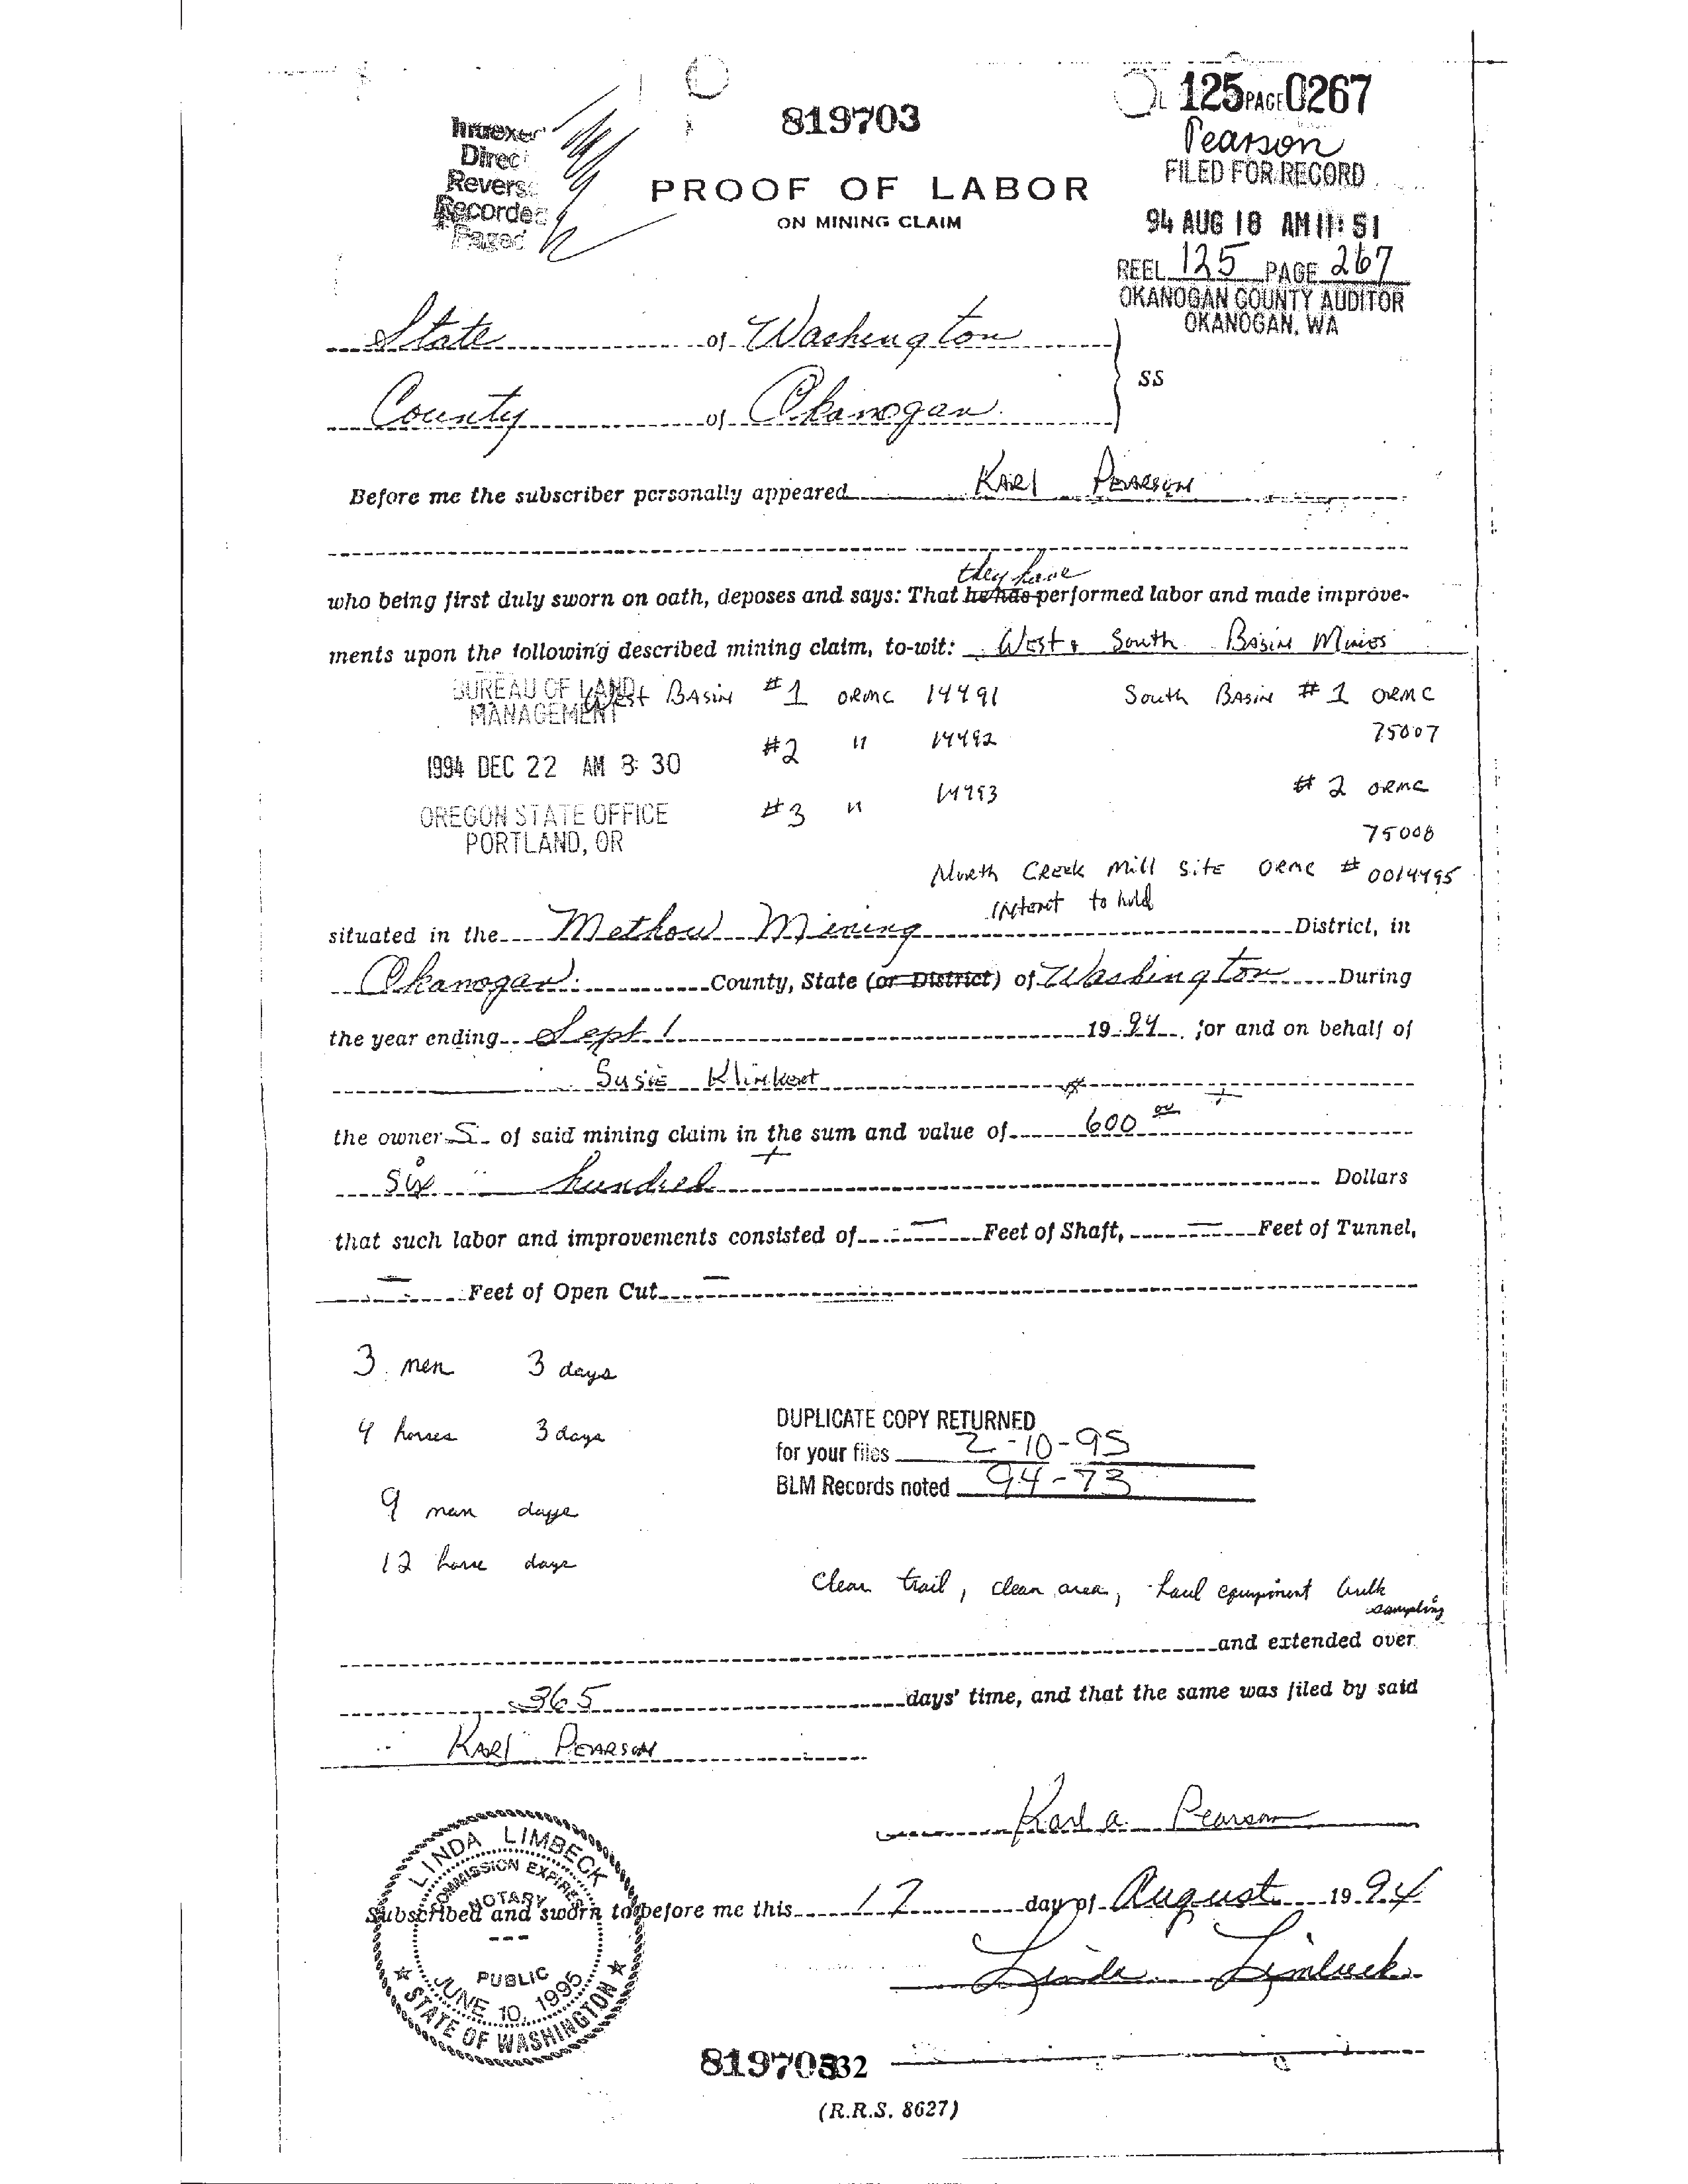 125 PAGE 0267
819703
Pearson
Direct
Reverse
Recorded
Paged
FILED FOR RECORD
PROOF OF LABOR
ON MINING CLAIM
94 AUG 18 AM 11: 51
REEL 125 PAGE 267
OKANOGAN COUNTY AUDITOR
OKANOGAN, WA
State of Washington
SS
County of Okanogan
Before me the subscriber personally appeared KARl PEARSON
they have
who being first duly sworn on oath, deposes and says: That he has performed labor and made improve-
ments upon the following described mining claim, to-wit: West & South BASIN MINES
BUREAU OF LAND
MANAGEMENT
West BASIN #1 ORMC 14491 South BASIN #1 ORMC
75007
#2 " 14492
1994 DEC 22 AM 8: 30
#2 ORMC
#3 " 14493
OREGON STATE OFFICE
PORTLAND, OR
75008
North Creek Mill Site ORMC # 0014495
Intent to hold
situated in the Methow Mining District, in
Okanogan County, State (or District) of Washington During
the year ending Sept 1 19 94, for and on behalf of
Susie Klinkert
the owner S of said mining claim in the sum and value of 600 00 +
six hundred + Dollars
that such labor and improvements consisted of — Feet of Shaft, — Feet of Tunnel,
— Feet of Open Cut —
3 men 3 days
4 horses 3 days
DUPLICATE COPY RETURNED
for your files 2-10-95
BLM Records noted 94-73
9 man days
12 horse days
Clear trail, clean area, haul equipment bulk
sampling
and extended over
365 days' time, and that the same was filed by said
KARl PEARSON
Karl A Pearson
LINDA LIMBECK
COMMISSION EXPIRES
NOTARY
---
PUBLIC
JUNE 10, 1995
STATE OF WASHINGTON
Subscribed and sworn to before me this 17 day of August 19 94
Linda Limbeck
(R.R.S. 8627)